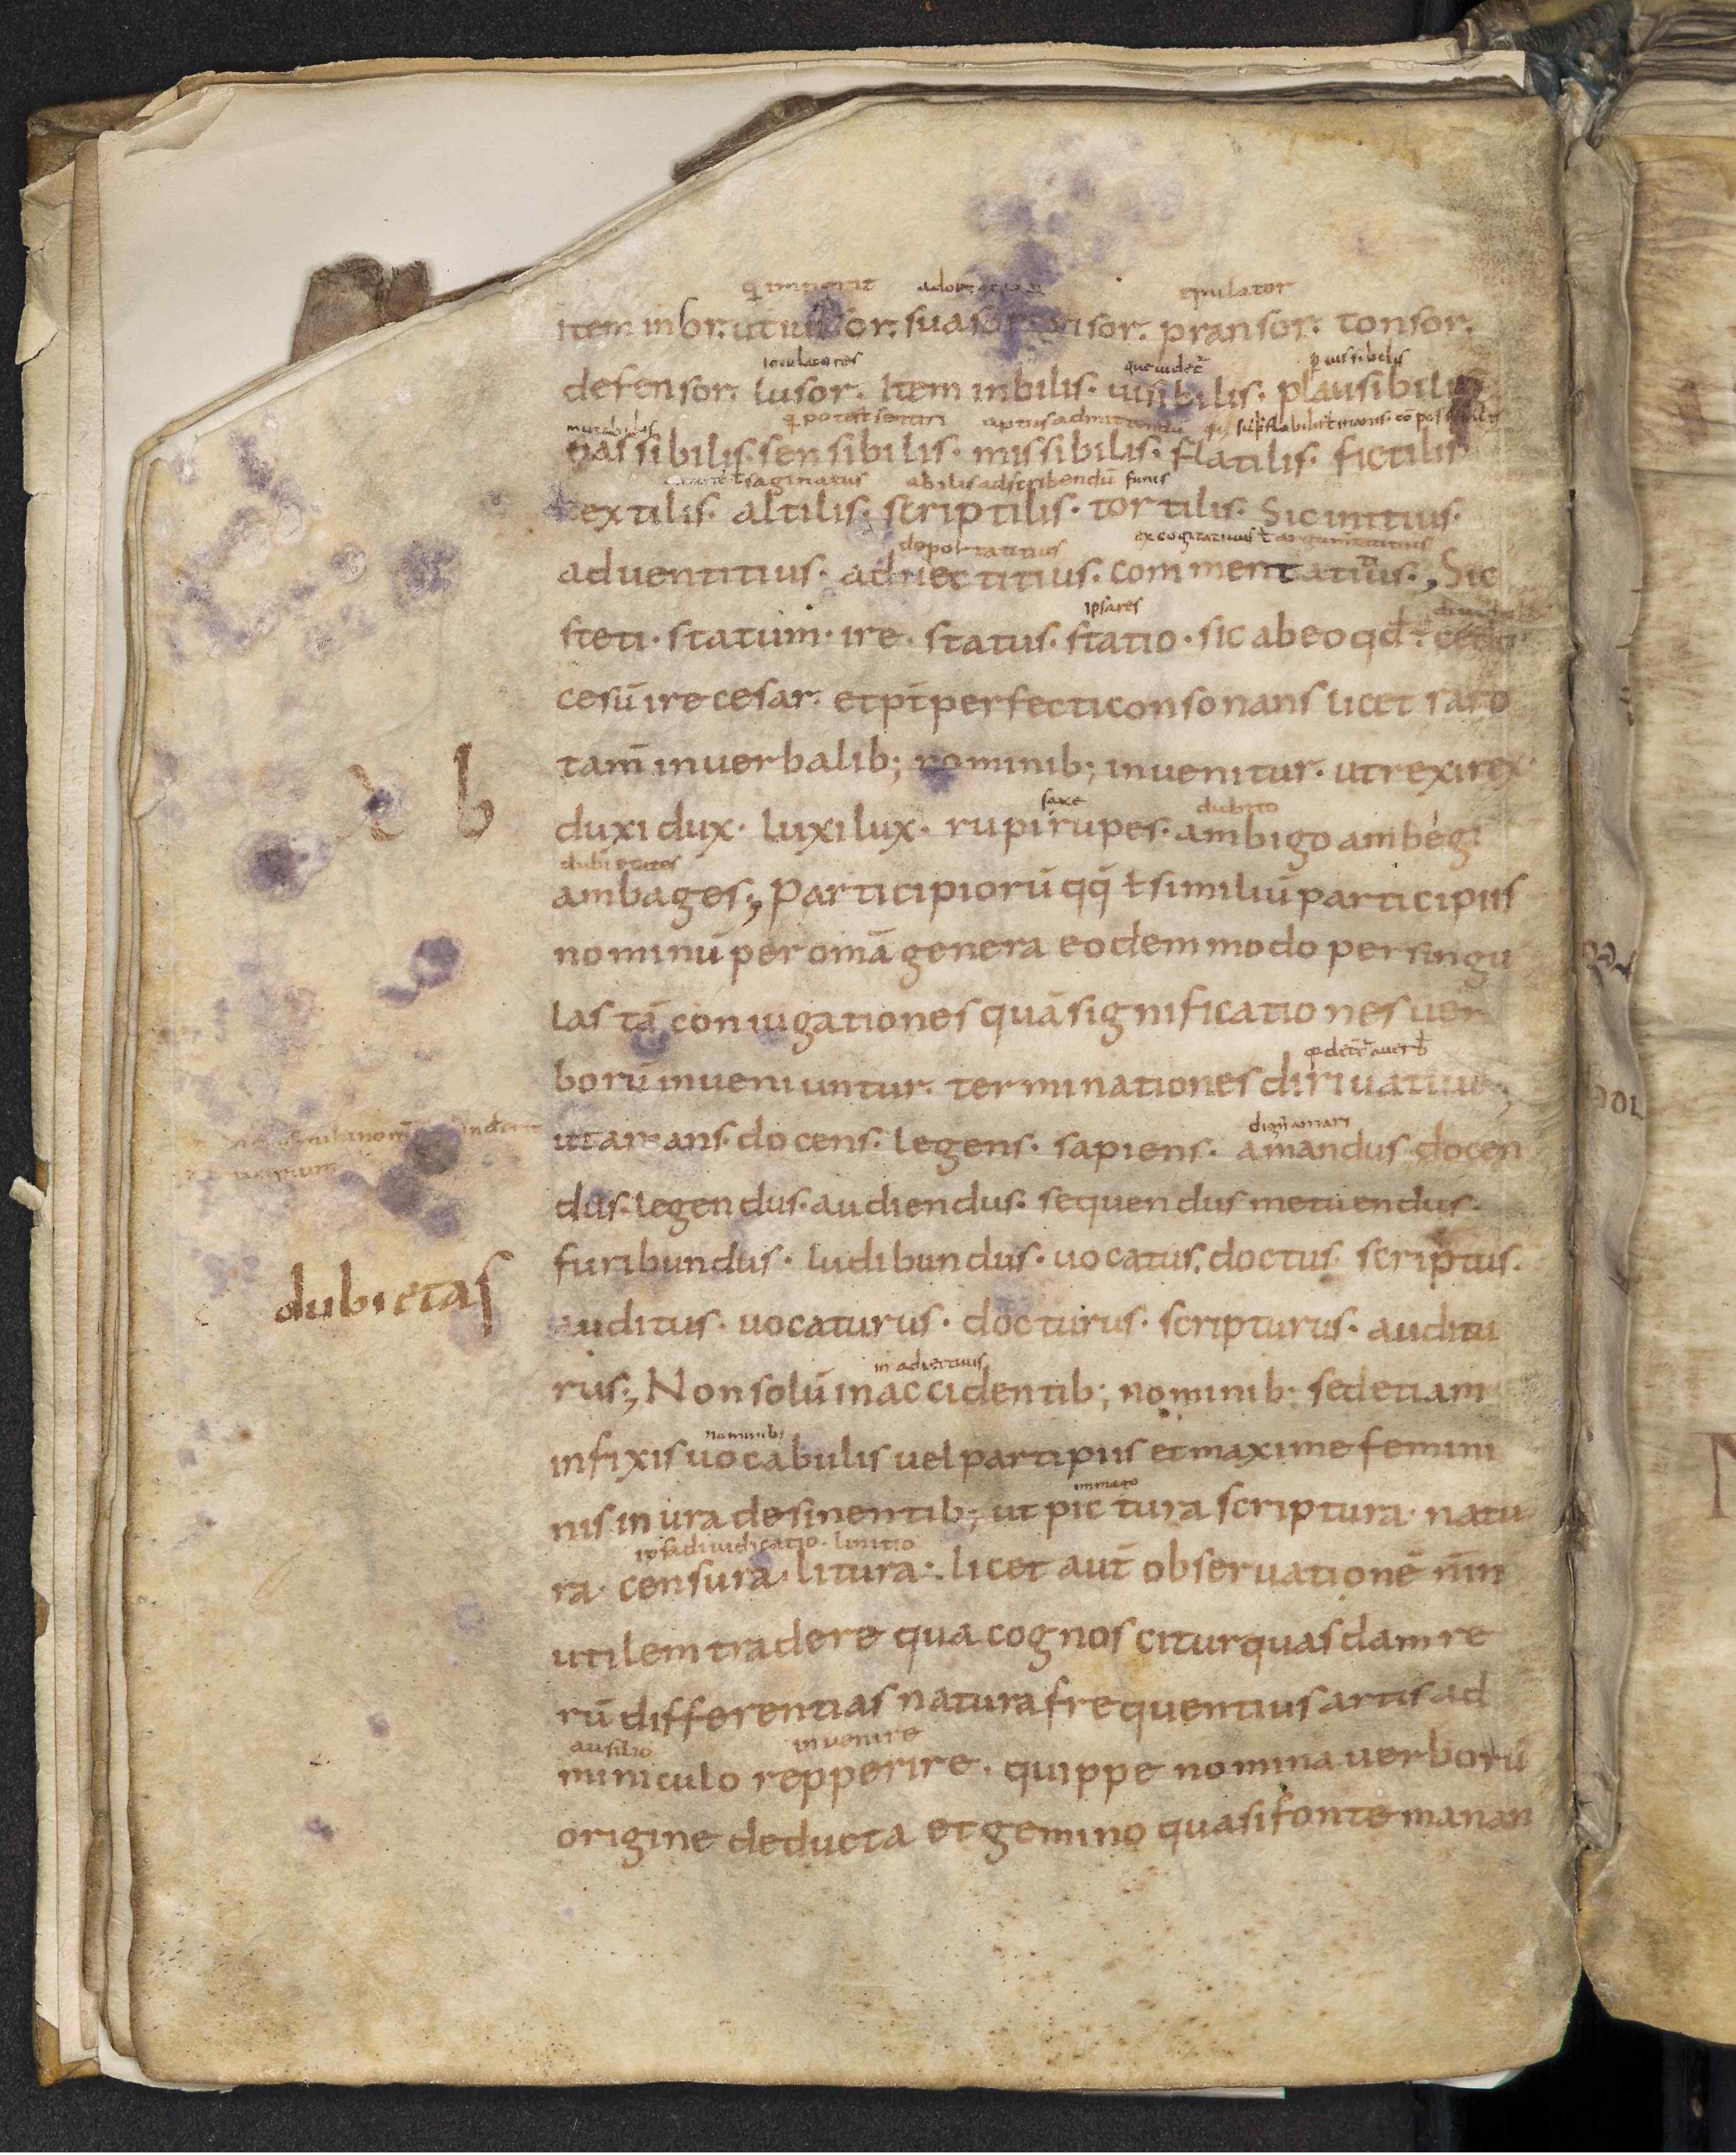 epulator
item in br. ut sor. pransor. tonsor.
ioculatores que uidet᷑ plausibilis
defensor. lusor. Item inbilis. uisibilis. plausibilis
mutabilis q̨ potest sentiri aptus ad mittendū
nassibilis. sensibilis. missibilis. flatilis. fictilis
saginatus abilis ad scribendū funis
textilis. altilis. scriptilis. tortilis. Sic inititius.
deportatitius excogitatiuus ł argumtatiuus
aduentitius. aduectitius. commentatiuus., Sic
ipsa res
steti. statum. ire. status. statio. sic ab eo qd÷ cedo
cesū ire cesar. et pt̄ perfecti consonans licet raro
tam̄ in uerbalib; nominib; inuenitur. ut rexi rex
b
saxe dubito
duxi dux. luxi lux. rupi rupes. ambigo ambegi
dubietates
ambages., Participiorū qq̄ ł similiū participiis
nominū per omā genera eodem modo per singu
las tā coniugationes quā significationes uer
borū inueniuntur. terminationes diriuatiuo;
dign̄ amari
ut amans. docens. legens. sapiens. amandus docen
dus. legendus. audiendus. sequendus metuendus.
furibundus. ludibundus. uocatus. doctus. scriptus.
dubietas
auditus. uocaturus. docturus. scripturus. auditu
in adiectiuis
rus., Non solū in accidentib; nominib; sed etiam
nominib;
in fixis uocabulis uel partipiis et maxime femini
immago
nis in ura desinentib; ut pictura scriptura. natu
adiudicatio. linitio
ra. censura. litura:. licet aut̄ obseruationē nīn
utilem tradere qua cognoscitur quasdam re
rū differentias natura frequentius artis ad
ausilio inuenire
miniculo repperire. quippe nomina uerborū
origine deducta et gemino quasi fonte manan